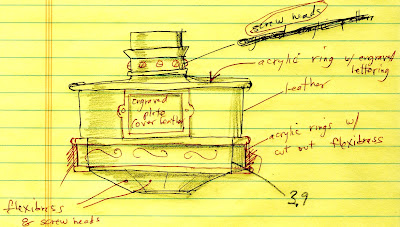 screw heads
acrylic ring w/ engraved
lettering
leather
Engraved
plate
over leather
acrylic rings w/
cut out flexibrass
3.9
flexibrass
& screw heads